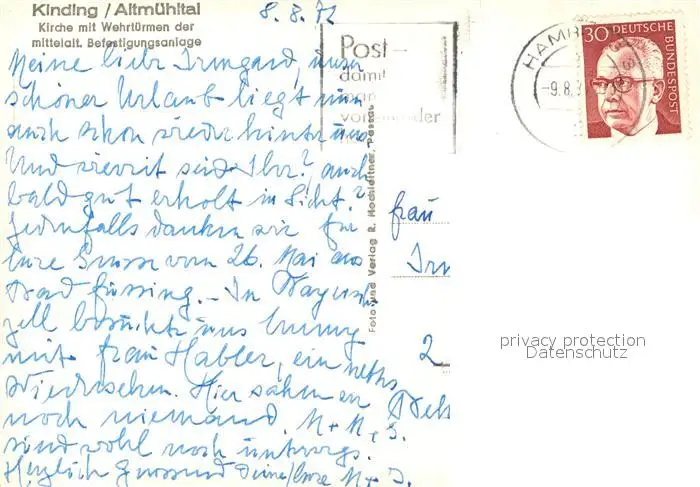 Kinding / Altmühltal
Kirche mit Wehrtürmen der
mittelalt. Befestigungsanlage
8. 8. 72
Meine liebe Irmgard, unser
schöner Urlaub liegt nun
auch schon wieder hinter uns
Und wieweit seid Ihr? auch
bald gut erholt in Sicht?
Jedenfalls danken wir für
Eure Grüsse vom 26. Mai aus
Bad Füssing. – In Bayrisch
zell besuchte uns
mit Frau Habler, ein nettes
Wiedersehen. Hier sahen wir
noch niemand. M + M + S.
sind wohl noch unterwegs.
Herzlich grüssend Deine/Eure M + J.
Foto und Verlag R. Hochleitner, Passau
Post-
damit
man
voneinander
HAMB
-9.8.7
30 DEUTSCHE
BUNDESPOST
Frau
2
privacy protection
Datenschutz